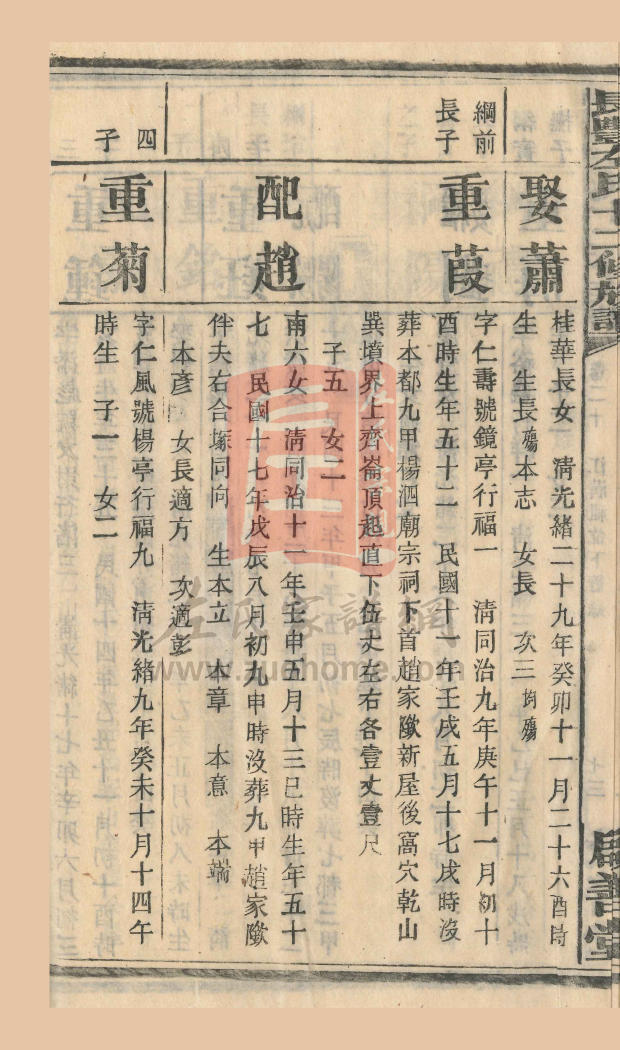 長豐左氏十二修族譜
娶蕭
桂華長女 清光緒二十九年癸卯十一月二十六酉時
生 生長殤本志 女長 次三均殤
綱前
長子
重葭
字仁壽號鏡亭行福一 清同治九年庚午十一月初十
酉時生年五十二 民國十一年壬戌五月十七戌時沒
葬本都九甲楊泗廟宗祠下首趙家隞新屋後窩穴乾山
巽墳界上齊崙頂起直下伍丈左右各壹丈壹尺
子五 女二
配趙
南六女 清同治十一年壬申五月十三巳時生年五十
七 民國十七年戊辰八月初九申時沒葬九甲趙家隞
伴夫右合塚同向 生本立 本章 本意 本端
本彥 女長適方 次適彭
四
子
重菊
字仁風號楊亭行福九 清光緒九年癸未十月十四午
時生 子一 女二
左氏家譜網
www.zuohome.com